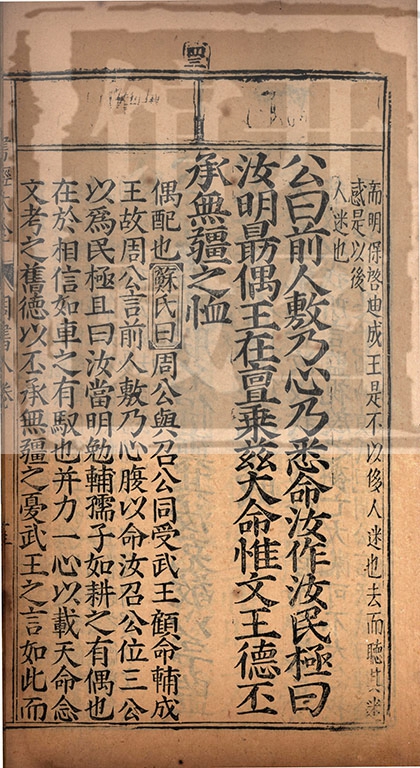 四三
而明保啓迪成王是不以後人迷也去而聽其迷
惑是以後
人迷也
公曰前人敷乃心乃悉命汝作汝民極曰
汝明勗偶王在亶乗茲大命惟文王德丕
承無疆之恤
偶配也蘇氏曰周公與召公同受武王顧命輔成
王故周公言前人敷乃心腹以命汝召公位三公
以爲民極且曰汝當明勉輔孺子如耕之有偶也
在於相信如車之有馭也并力一心以載天命念
文考之舊德以丕承無疆之憂武王之言如此而